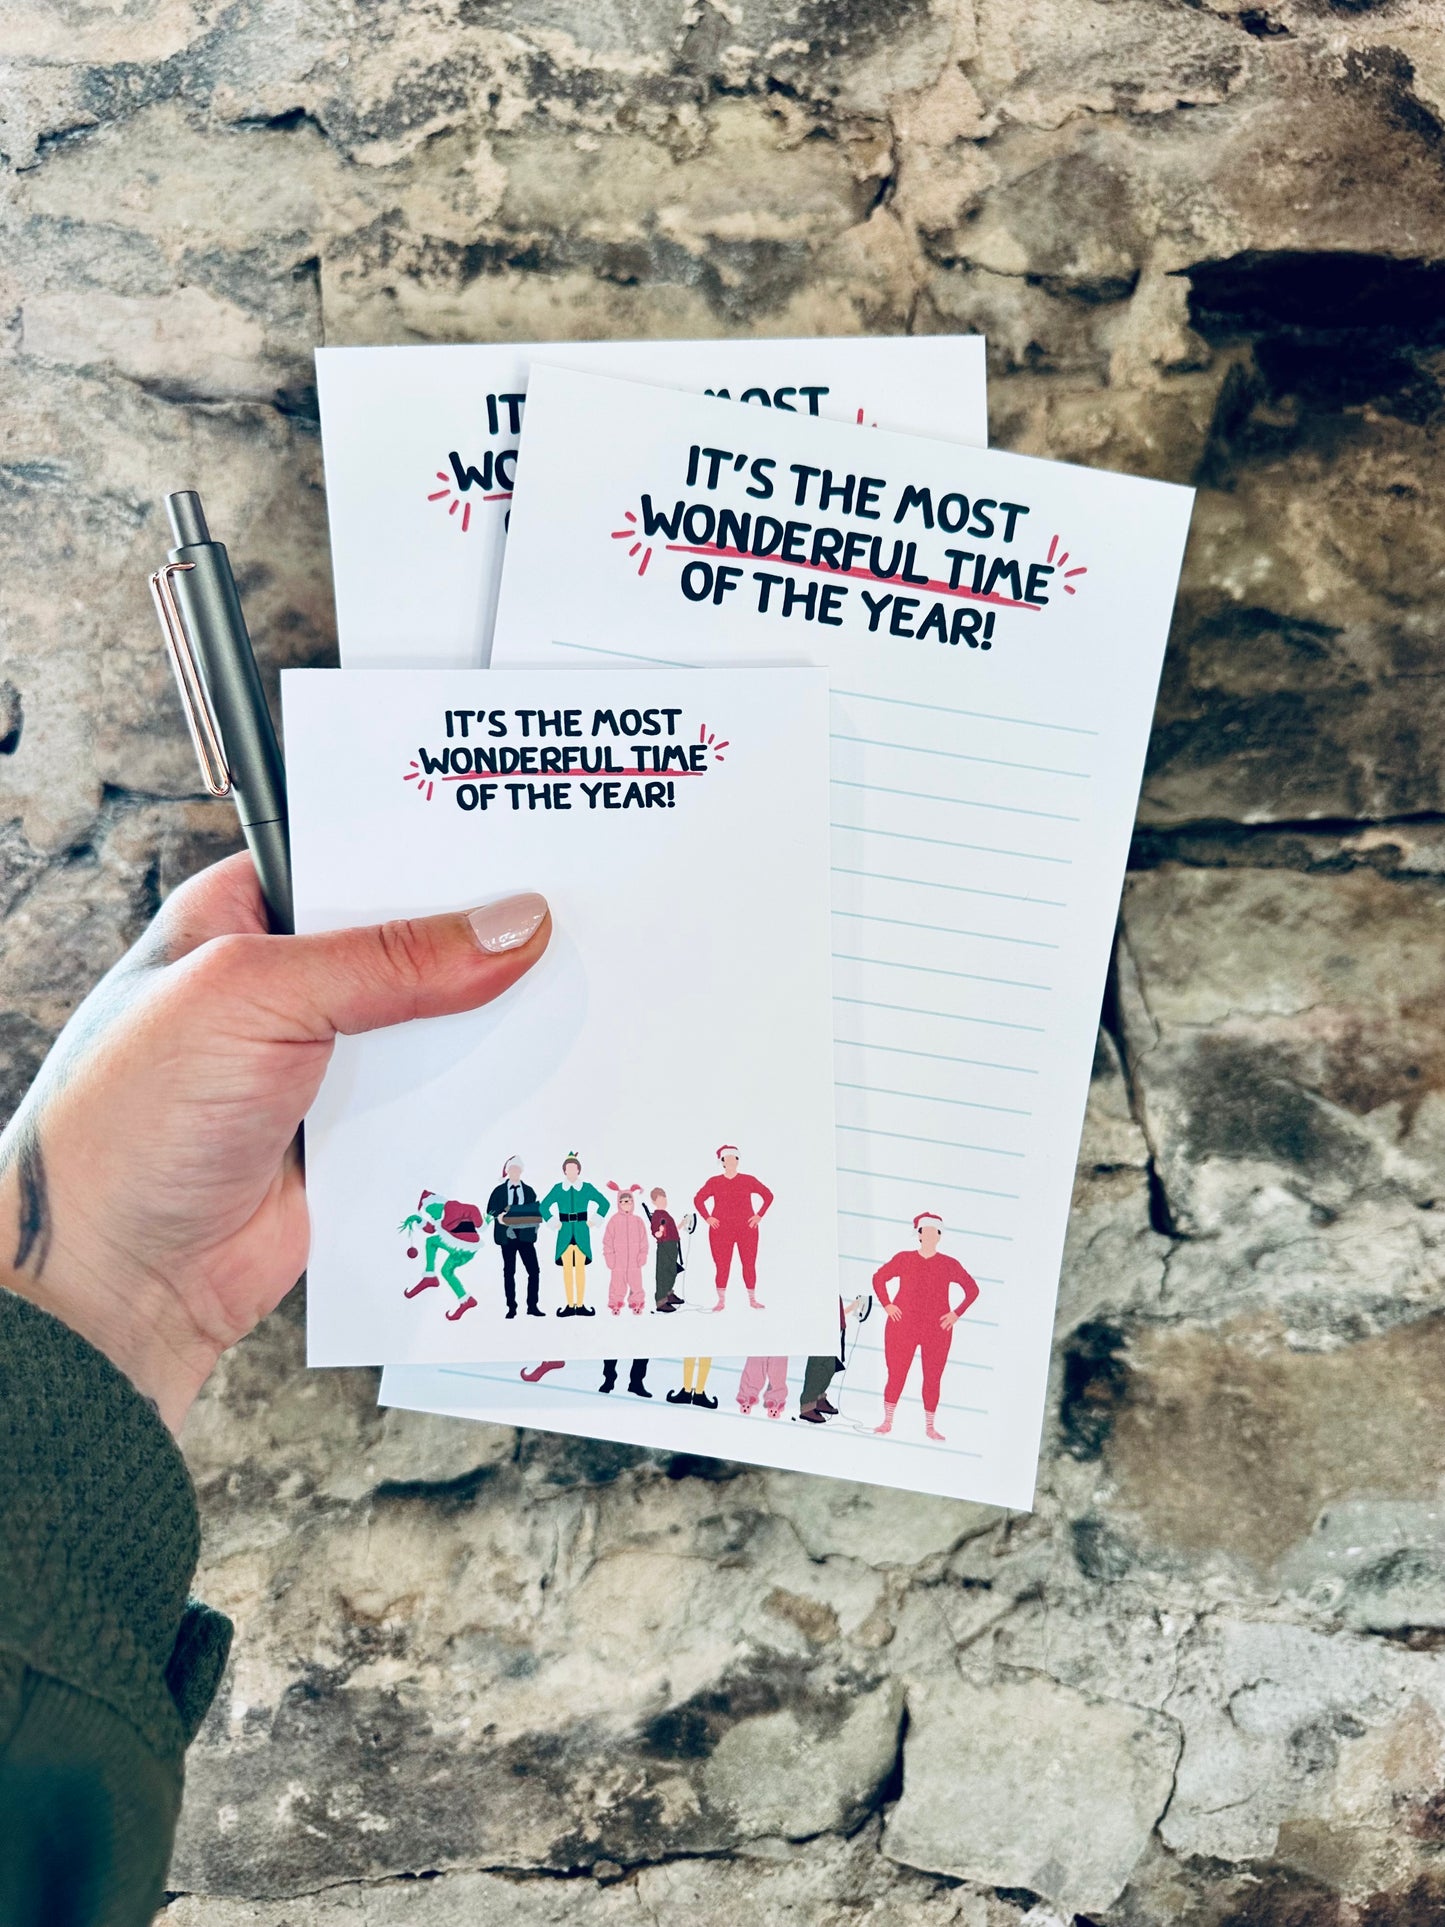 IT MOST
WO
IT'S THE MOST
WONDERFUL TIME
OF THE YEAR!
IT'S THE MOST
WONDERFUL TIME
OF THE YEAR!